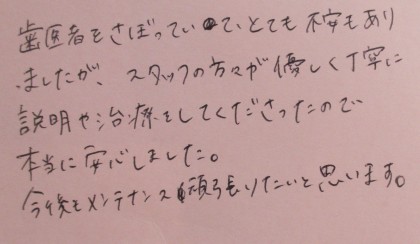 歯医者をさぼっていて、とても不安もあり
ましたが、スタッフの方々が優しく丁寧に
説明や治療をしてくださったので
本当に安心しました。
今後もメンテナンス頑張りたいと思います。